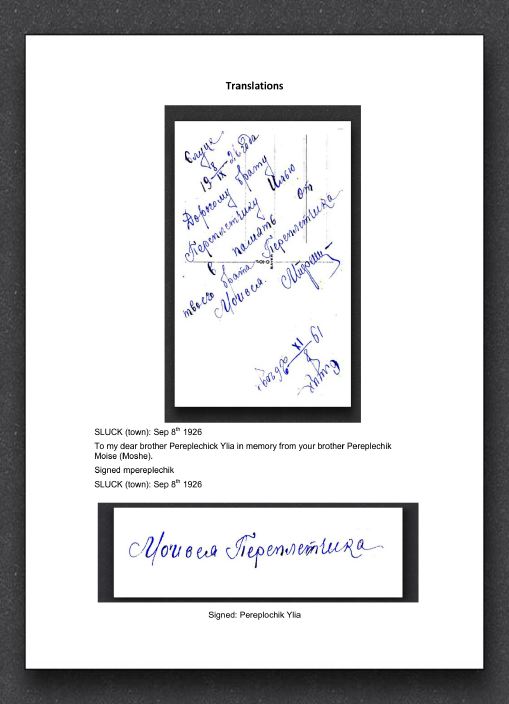 Translations
Слуцк
19 8/IX 26 года
Дорогому брату
Переплетчику Илью
в память от
твоего брата Переплетчика
Моисея.
SLUCK (town): Sep 8th 1926
To my dear brother Pereplechick Ylia in memory from your brother Pereplechik
Moise (Moshe).
Signed mpereplechik
SLUCK (town): Sep 8th 1926
Моисея Переплетчика
Signed: Pereplochik Ylia